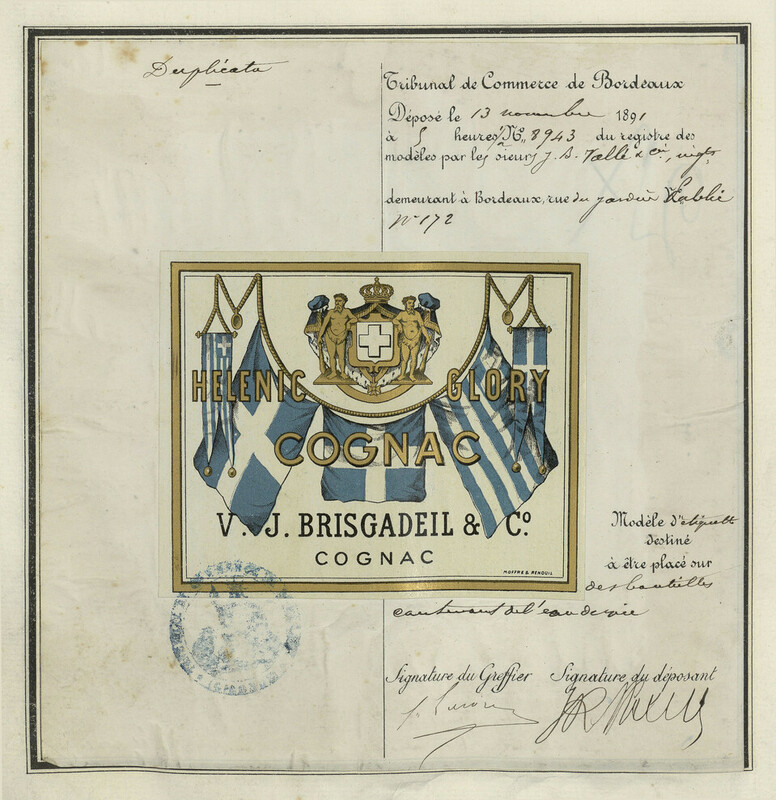 Duplicata
Tribunal de Commerce de Bordeaux
Déposé le 13 novembre 1891
à 5 heures, N° 8943 du registre des
modèles par les sieurs J. B. & Cie,
demeurant à Bordeaux, rue du jardin Public
N° 172
HELENIC GLORY
COGNAC
V. J. BRISGADEIL & Co
COGNAC
MOFFRE & RENOUIL
Modèle d'étiquette
destiné
à être placé sur
des bouteilles
contenant de l'eau de vie
Signature du Greffier Signature du déposant